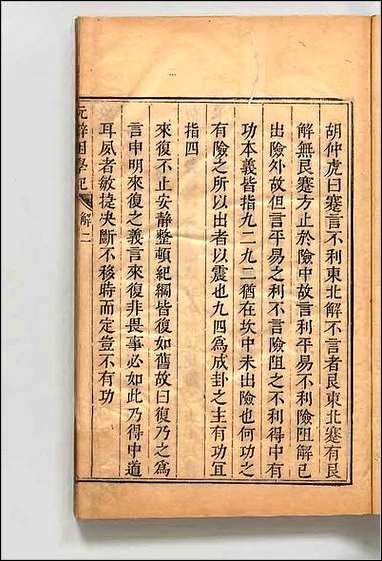 胡仲虎曰蹇言不利東北解不言者艮東北蹇有艮
解無艮蹇方止於險中故言利平易不利險阻解已
出險外故但言平易之利不言險阻之不利得中有
功本義皆指九二九二猶在坎中未出險也何功之
有險之所以出者以震也九四為成卦之主有功宜
指四
來復不止安靜整頓紀綱皆復如舊故曰復乃之為
言申明來復之義言來復非畏事必如此乃得中道
耳夙者敏捷決斷不移時而定豈不有功
玩辭困學記
解二